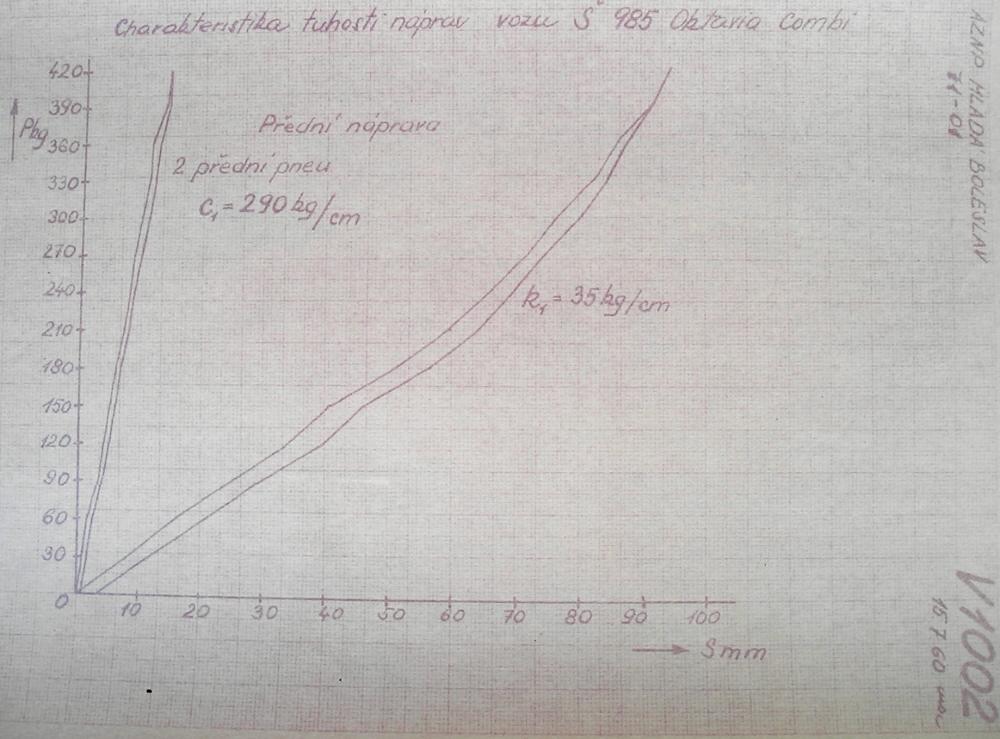 Charakteristika tuhosti náprav vozu Š 985 Oktavia Combi
420
390
Pkg
360
330
300
270
240
210
180
150
120
90
60
30
0
Přední náprava
2 přední pneu
c₁ = 290 kg/cm
k₁ = 35 kg/cm
10 20 30 40 50 60 70 80 90 100
S mm
AZNP MLADÁ BOLESLAV
V1002
15 7 60